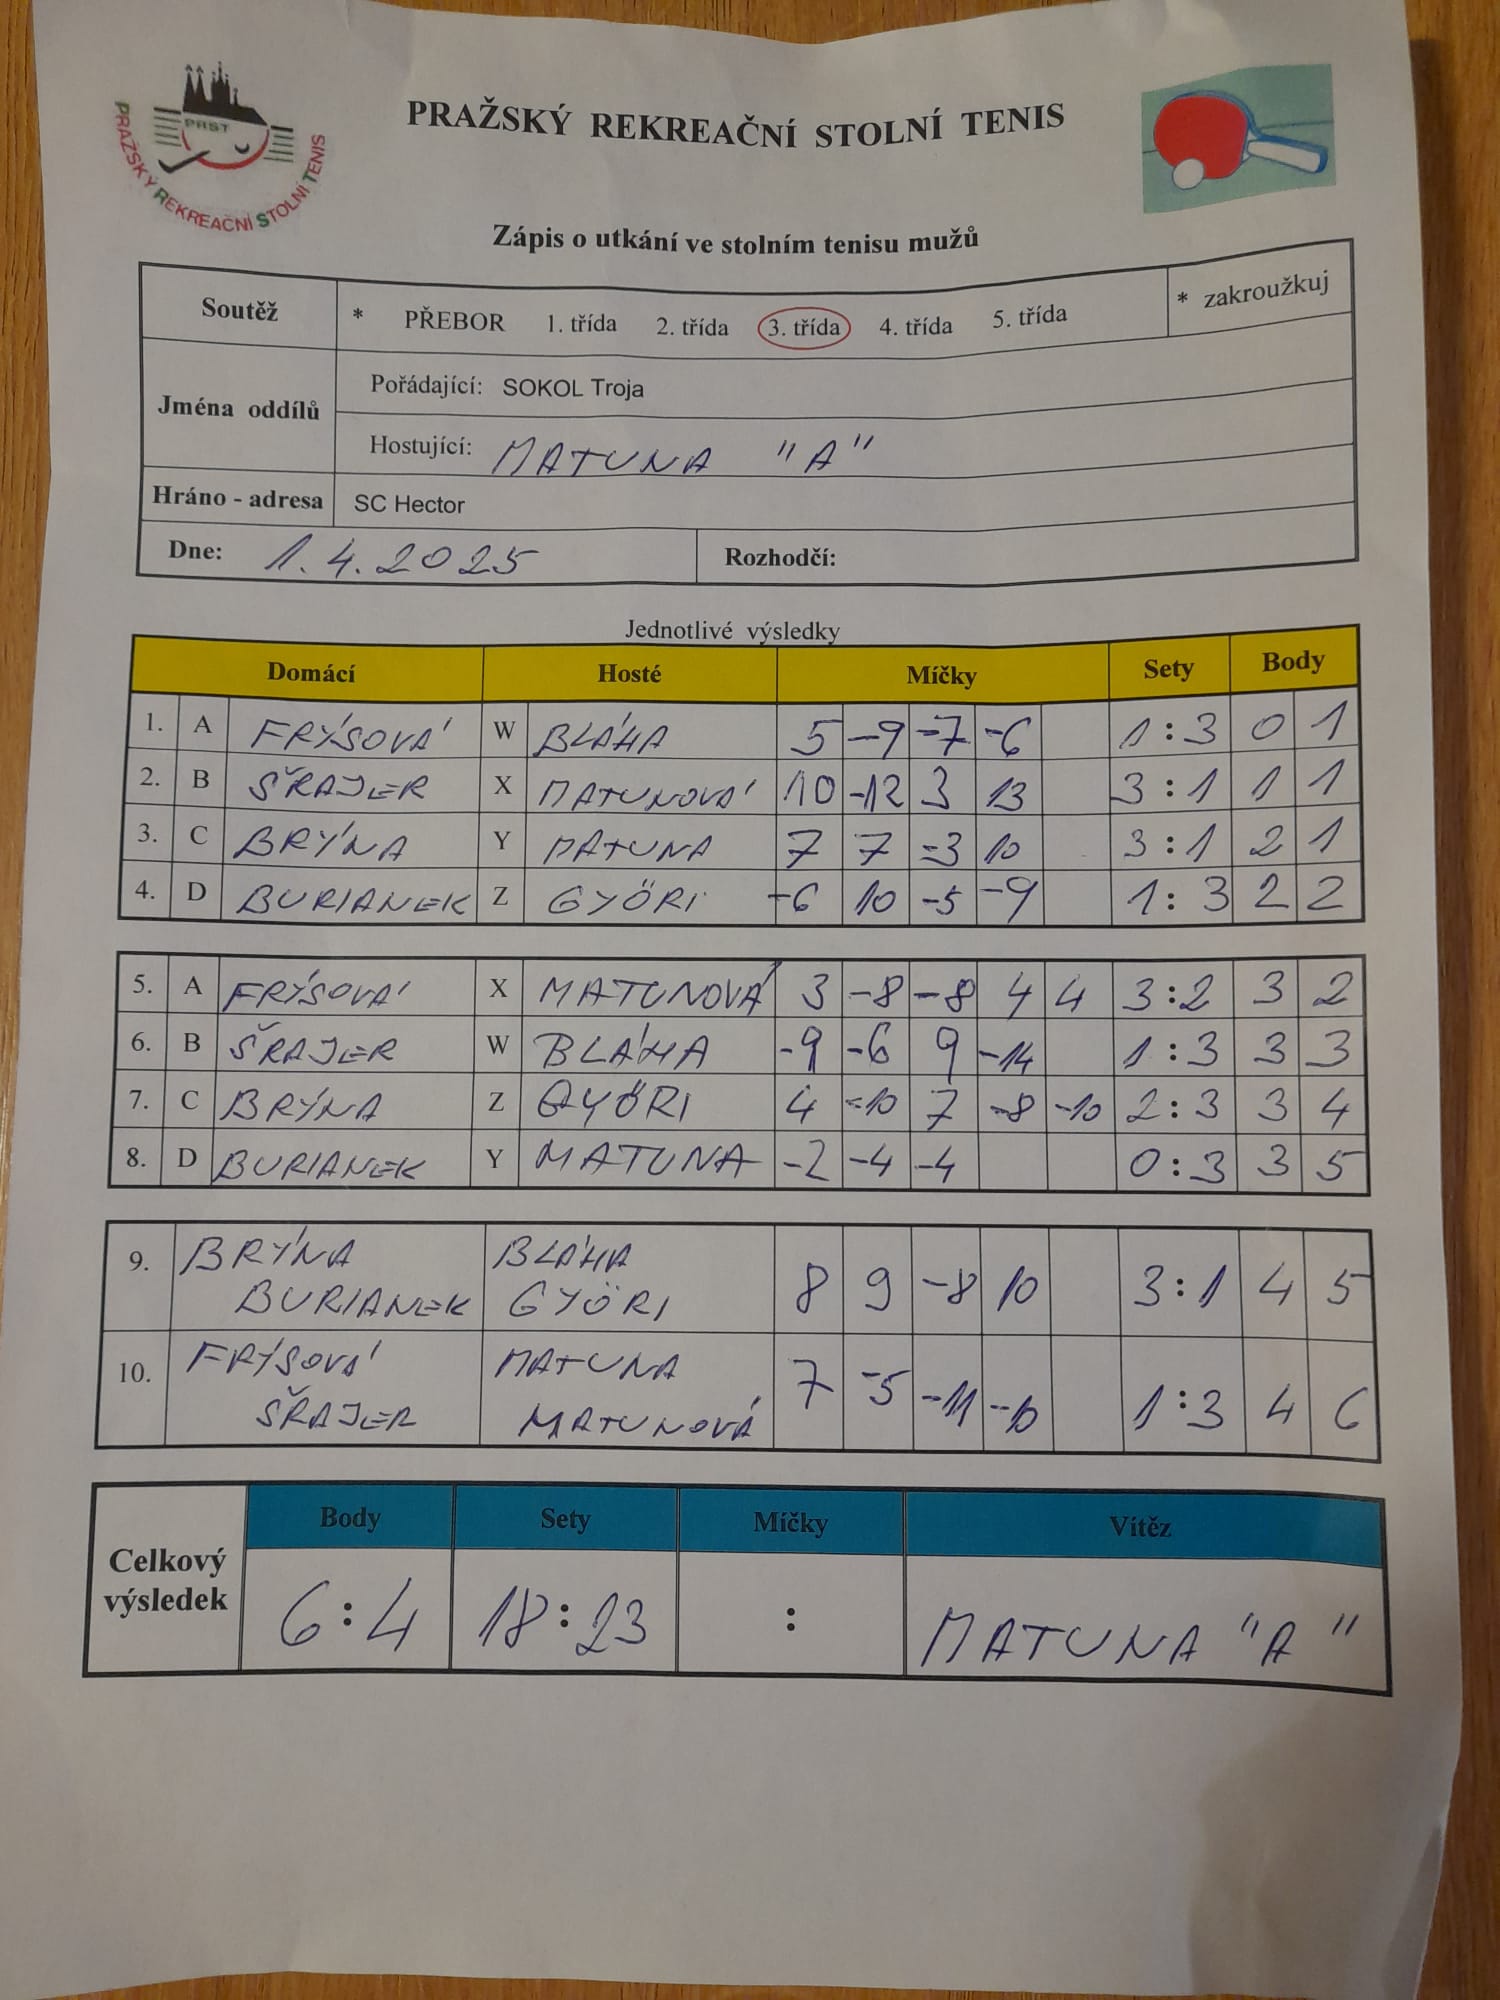 PRST
PRAŽSKÝ REKREAČNÍ STOLNÍ TENIS
PRAŽSKÝ REKREAČNÍ STOLNÍ TENIS
Zápis o utkání ve stolním tenisu mužů
Soutěž * PŘEBOR 1. třída 2. třída 3. třída 4. třída 5. třída * zakroužkuj
Jména oddílů
Pořádající: SOKOL Troja
Hostující: MATUNA "A"
Hráno - adresa SC Hector
Dne: 1.4.2025 Rozhodčí:
Jednotlivé výsledky
Domácí Hosté Míčky Sety Body
1. A FRÝSOVÁ W BLÁHA 5 -9 -7 -6 1:3 0 1
2. B ŠRAJER X MATUNOVÁ 10 -12 3 13 3:1 1 1
3. C BRÝNA Y MATUNA 7 7 -3 10 3:1 2 1
4. D BURIANEK Z GYÖRI -6 10 -5 -9 1:3 2 2
5. A FRÝSOVÁ X MATUNOVÁ 3 -8 -8 4 4 3:2 3 2
6. B ŠRAJER W BLÁHA -9 -6 9 -14 1:3 3 3
7. C BRÝNA Z GYÖRI 4 -10 7 -8 -10 2:3 3 4
8. D BURIANEK Y MATUNA -2 -4 -4 0:3 3 5
9. BRÝNA BLÁHA
BURIANEK GYÖRI 8 9 -8 10 3:1 4 5
10. FRÝSOVÁ MATUNA
ŠRAJER MATUNOVÁ 7 -5 -11 -10 1:3 4 6
Body Sety Míčky Vítěz
Celkový výsledek 6:4 18:23 : MATUNA "A"